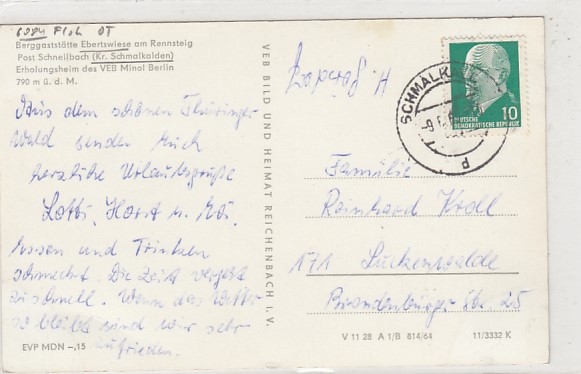 6084 Floh OT
Berggaststätte Ebertswiese am Rennsteig
Post Schnellbach (Kr. Schmalkalden)
Erholungsheim des VEB Minol Berlin
790 m ü. d. M.
Aus dem schönen Thüringer
Wald senden Euch
herzliche Urlaubsgrüße
Lotti, Horst u.
Essen und Trinken
schmeckt. Die Zeit vergeht
zu schnell. Wenn das Wetter
so bleibt sind wir sehr
zufrieden.
EVP MDN –,15
VEB BILD UND HEIMAT REICHENBACH I. V.
H.
SCHMALKALDEN
10
DEUTSCHE
DEMOKRATISCHE REPUBLIK
Familie
Reinhard Kroll
171 Luckenwalde
Brandenburger Str. 25
V 11 28 A 1/B 814/64 11/3332 K